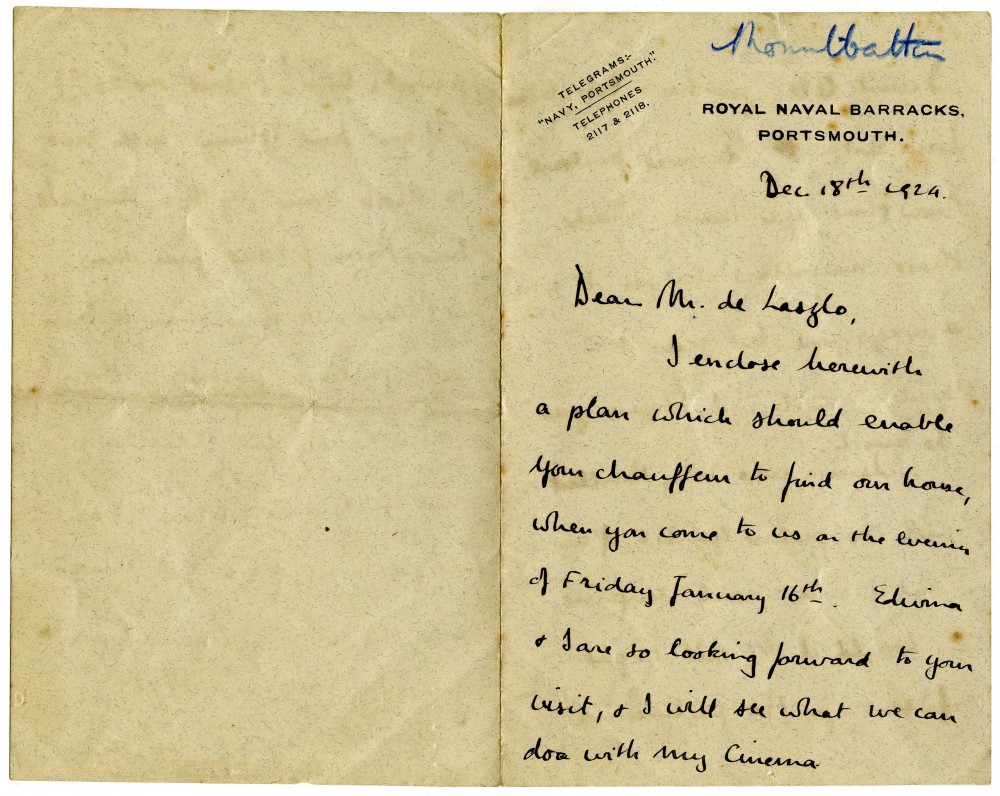 Mountbatten
TELEGRAMS:-
"NAVY, PORTSMOUTH."
TELEPHONES
2117 & 2118.
ROYAL NAVAL BARRACKS,
PORTSMOUTH.
Dec 18th 1924.
Dear Mr. de Laszlo,
I enclose herewith
a plan which should enable
your chauffeur to find our house,
when you come to us on the evening
of Friday January 16th. Edwina
& I are so looking forward to your
visit, & I will see what we can
doo with my Cinema